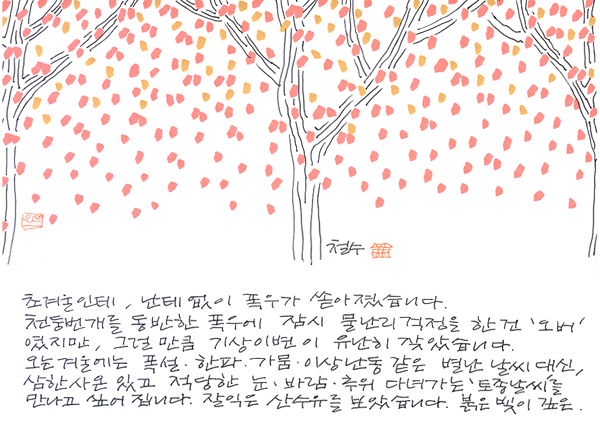 철수
초겨울인데, 난데 없이 폭우가 쏟아졌습니다.
천둥번개를 동반한 폭우에 잠시 물난리걱정을 한건 '오버'
였지만, 그럴 만큼 기상이변이 유난히 잦았습니다.
오는겨울에는 폭설·한파·가뭄·이상난동 같은 별난 날씨대신,
삼한사온 있고 적당한 눈·바람·추위 다녀가는 '토종날씨'를
만나고 싶어 집니다. 잘익은 산수유를 보았습니다. 붉은 빛이 깊은.